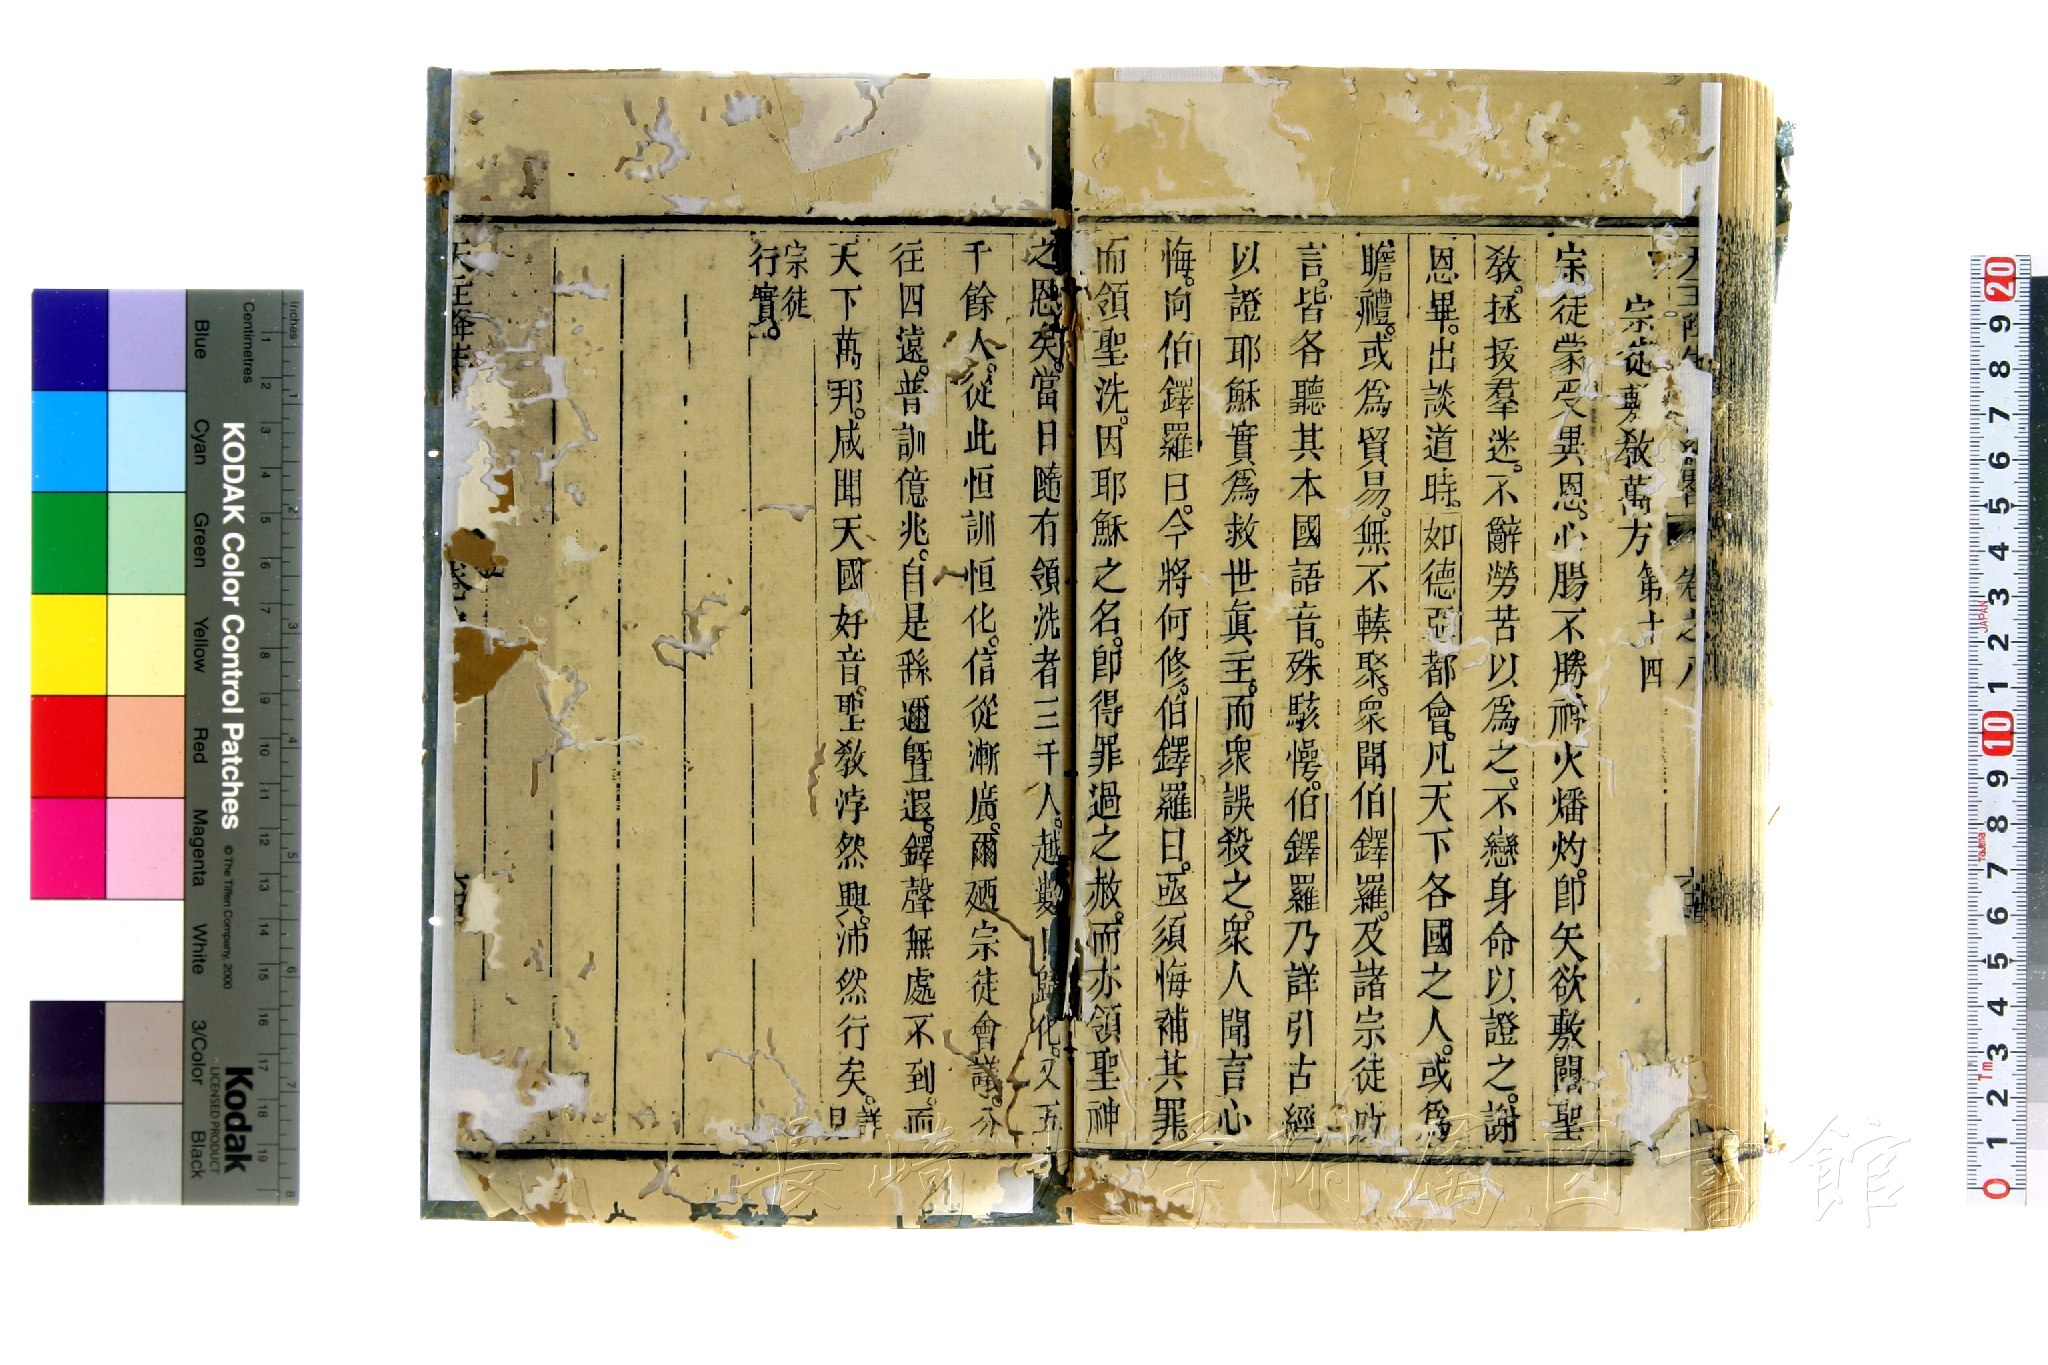 宗徒敷敎萬方第十四
宗徒蒙受異恩。心腸不勝神火燔灼。卽矢欲敷闡聖
敎。拯拔羣迷。不辭勞苦以爲之。不戀身命以證之。謝
恩畢。出談道時。如德亞都會。凡天下各國之人。或爲
瞻禮。或爲貿易。無不輳聚。衆聞伯鐸羅。及諸宗徒所
言。皆各聽其本國語音。殊駭愕。伯鐸羅乃詳引古經
以證耶穌實爲救世眞主。而衆誤殺之。衆人聞言心
悔。向伯鐸羅曰。今將何修。伯鐸羅曰。亟須悔補其罪。
而領聖洗。因耶穌之名。卽得罪過之赦。而亦領聖神
之恩矣。當日隨有領洗者三千人。越數日歸化。又五
千餘人。從此恒訓恒化。信從漸廣。爾廼宗徒會議。分
往四遠。普訓億兆。自是繇邇曁遐。鐸聲無處不到。而
天下萬邦。咸聞天國好音。聖敎浡然興。沛然行矣。詳見
宗徒
行實。
卷之八
KODAK Color Control Patches
© The Tiffen Company, 2000
Kodak
LICENSED PRODUCT
Inches
Centimetres
Blue
Cyan
Green
Yellow
Red
Magenta
White
3/Color
Black
JAPAN
長崎大学附属図書館